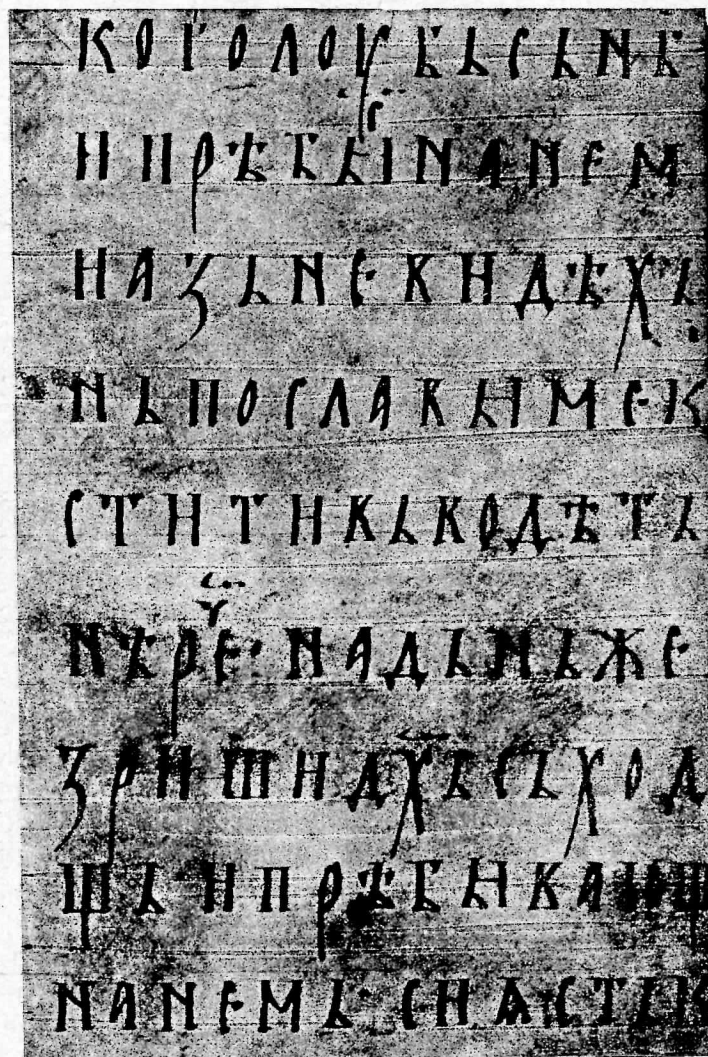 КОГОЛОУБЬСЬNБ
ИПРѢБЫС҇NАNЕМ
ИАЗЬNЕВИДѢХЬ
NЬПОСЛАВЬИМЕК
СТИТИВЬВОДѢТЬ
NѢРЕЧ҇· NАДЬNЬЖЕ
ЗРИШИДХ҃ЬСЬХОД
ЩЬИПРѢБЬІВАЮЩ
NАNЕМЬ· СИѤСТЬК